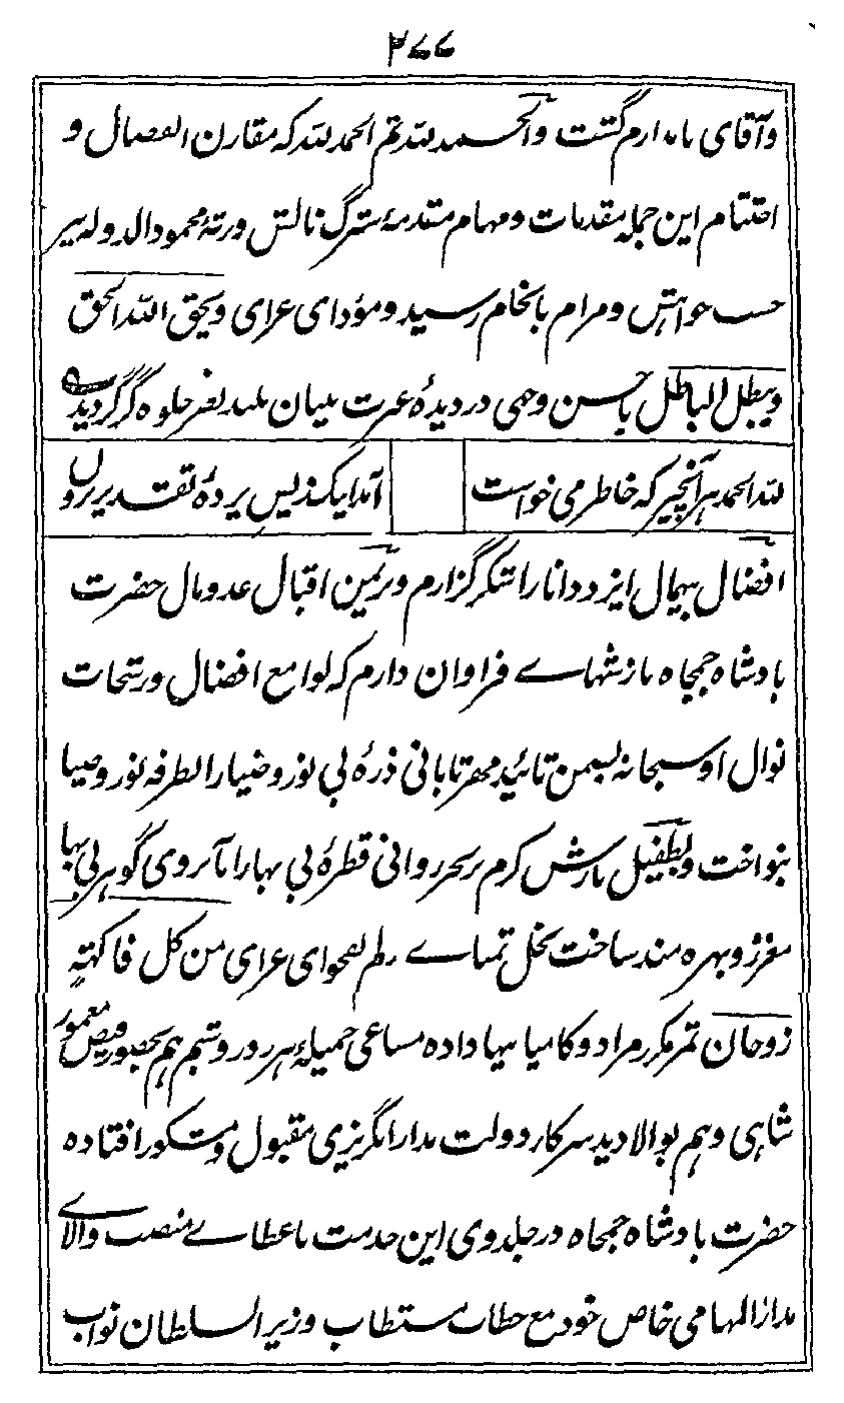 ۲۷۷
وآقای نامدارم گشت والحمد لله ثم الحمد لله که مقارن انفصال و
اختتام این جمله مقدمات ومهام مقدمهٔ سترگ نالش ورثهٔ محمود الدوله نیز
حسب خواهش ومرام بانجام رسید ومؤدای عرای ویحق الله الحق
ویبطل الباطل باحسن وجهی در دیدهٔ عبرت بینان بلند نظر جلوه گر گردید
لله الحمد هر آنچیز که خاطر می خواست
آمد ایک ز پس پردهٔ تقدیر برون
افضال بیهمال ایزد دانا را شکر گزارم وبریمن اقبال عدومال حضرت
بادشاه جمجاه نازشهاے فراوان دارم که لوامع افضال ورشحات
نوال او سبحانه بیمن تائید مهر تابانی ذرهٔ بی نور وضیا را بطرفه نور وضیا
بنواخت وبطفیل بارش کرم بحر روانی قطرهٔ بی بها را بآبروی گوهر بی بها
معزز وبهره مند ساخت نخل تمناے دلم بفحوای عرای من کل فاکهةٍ
زوجان ثمر مکرر مراد وکامیابیها داده مساعی جمیلهٔ هر در رویم هم بحضور فیض معمور
شاهی وهم بوالا دید سرکار دولت مدار انگریزی مقبول ومشکور افتاده
حضرت بادشاه جمجاه در جلدوی این خدمت باعطاے منصب والاے
مدار المهامی خاص خود مع خطاب مستطاب وزیر السلطان نواب